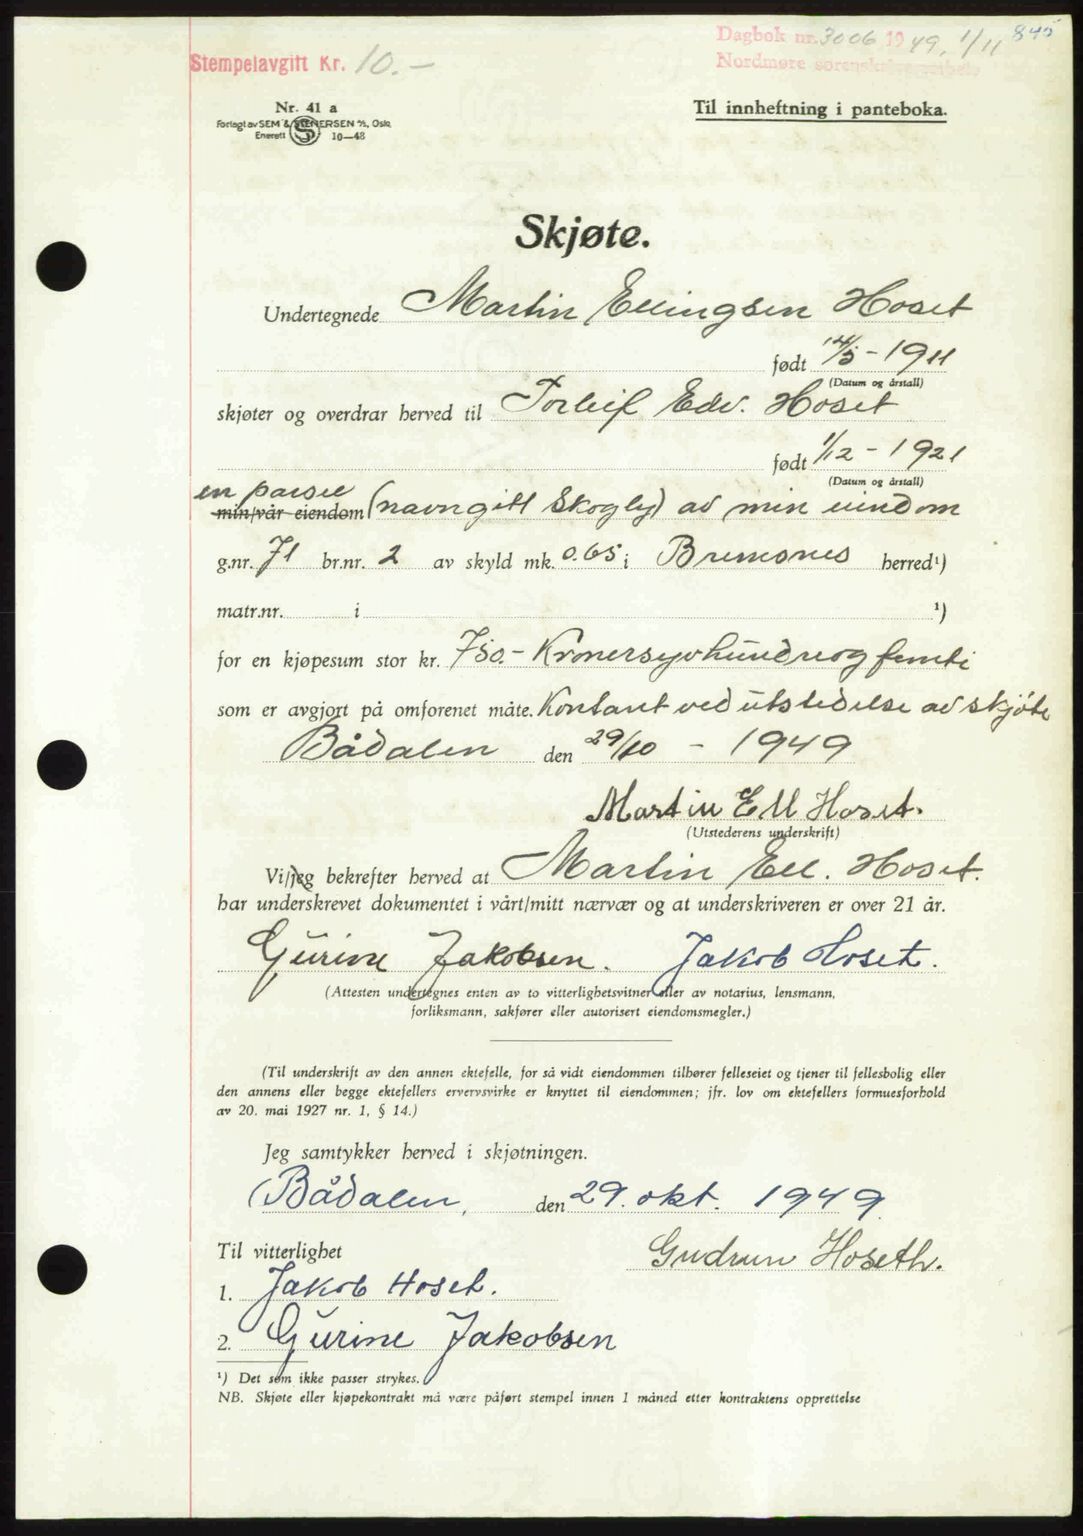 Dagbok nr. 3006 1949, 1/11 845
Stempelavgitt Kr. 10.-
Nordmøre sorenskriverembete
Nr. 41 a
Forlagt av SEM & STENERSEN A/S, Oslo
Enerett 10—48
Til innheftning i panteboka.
Skjøte.
Undertegnede Martin Ellingsen Hoset
født 14/5 - 1911
(Datum og årstall)
skjøter og overdrar herved til Torleif Edv. Hoset
født 1/12 - 1921
(Datum og årstall)
en parsel
min/vår eiendom (navngitt Skogly) av min eiendom
g.nr. 71 br.nr. 2 av skyld mk. 0.65 i Bremsnes herred¹)
matr.nr. i ¹)
for en kjøpesum stor kr. 750.- Kronersyvhundreogfemti
som er avgjort på omforenet måte. Kontant ved utstedelse av skjøte
Bådalen den 29/10 - 1949
Martin Ell Hoset.
(Utstederens underskrift)
Vi/jeg bekrefter herved at Martin Ell. Hoset.
har underskrevet dokumentet i vårt/mitt nærvær og at underskriveren er over 21 år.
Gurine Jakobsen. Jakob Hoset.
(Attesten undertegnes enten av to vitterlighetsvitner eller av notarius, lensmann,
forliksmann, sakfører eller autorisert eiendomsmegler.)
(Til underskrift av den annen ektefelle, for så vidt eiendommen tilhører felleseiet og tjener til fellesbolig eller
den annens eller begge ektefellers ervervsvirke er knyttet til eiendommen; jfr. lov om ektefellers formuesforhold
av 20. mai 1927 nr. 1, § 14.)
Jeg samtykker herved i skjøtningen.
Bådalen, den 29. okt. 1949
Til vitterlighet
Gudrun Hoseth.
1. Jakob Hoset.
2. Gurine Jakobsen
¹) Det som ikke passer strykes.
NB. Skjøte eller kjøpekontrakt må være påført stempel innen 1 måned etter kontraktens opprettelse